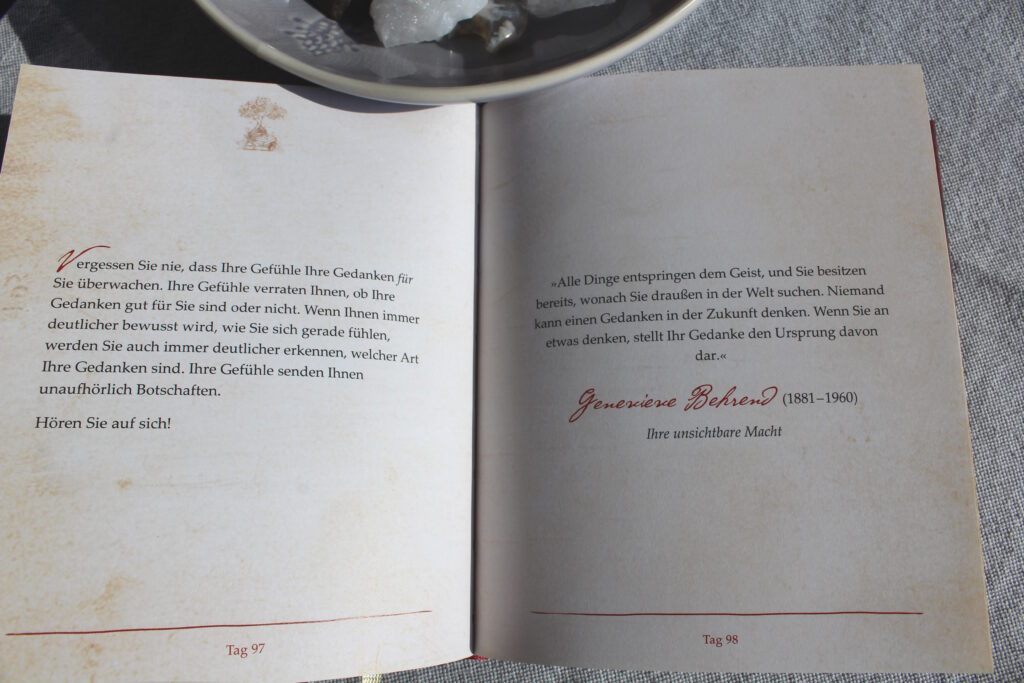 Vergessen Sie nie, dass Ihre Gefühle Ihre Gedanken für
Sie überwachen. Ihre Gefühle verraten Ihnen, ob Ihre
Gedanken gut für Sie sind oder nicht. Wenn Ihnen immer
deutlicher bewusst wird, wie Sie sich gerade fühlen,
werden Sie auch immer deutlicher erkennen, welcher Art
Ihre Gedanken sind. Ihre Gefühle senden Ihnen
unaufhörlich Botschaften.
Hören Sie auf sich!
Tag 97
»Alle Dinge entspringen dem Geist, und Sie besitzen
bereits, wonach Sie draußen in der Welt suchen. Niemand
kann einen Gedanken in der Zukunft denken. Wenn Sie an
etwas denken, stellt Ihr Gedanke den Ursprung davon
dar.«
Genevieve Behrend (1881–1960)
Ihre unsichtbare Macht
Tag 98